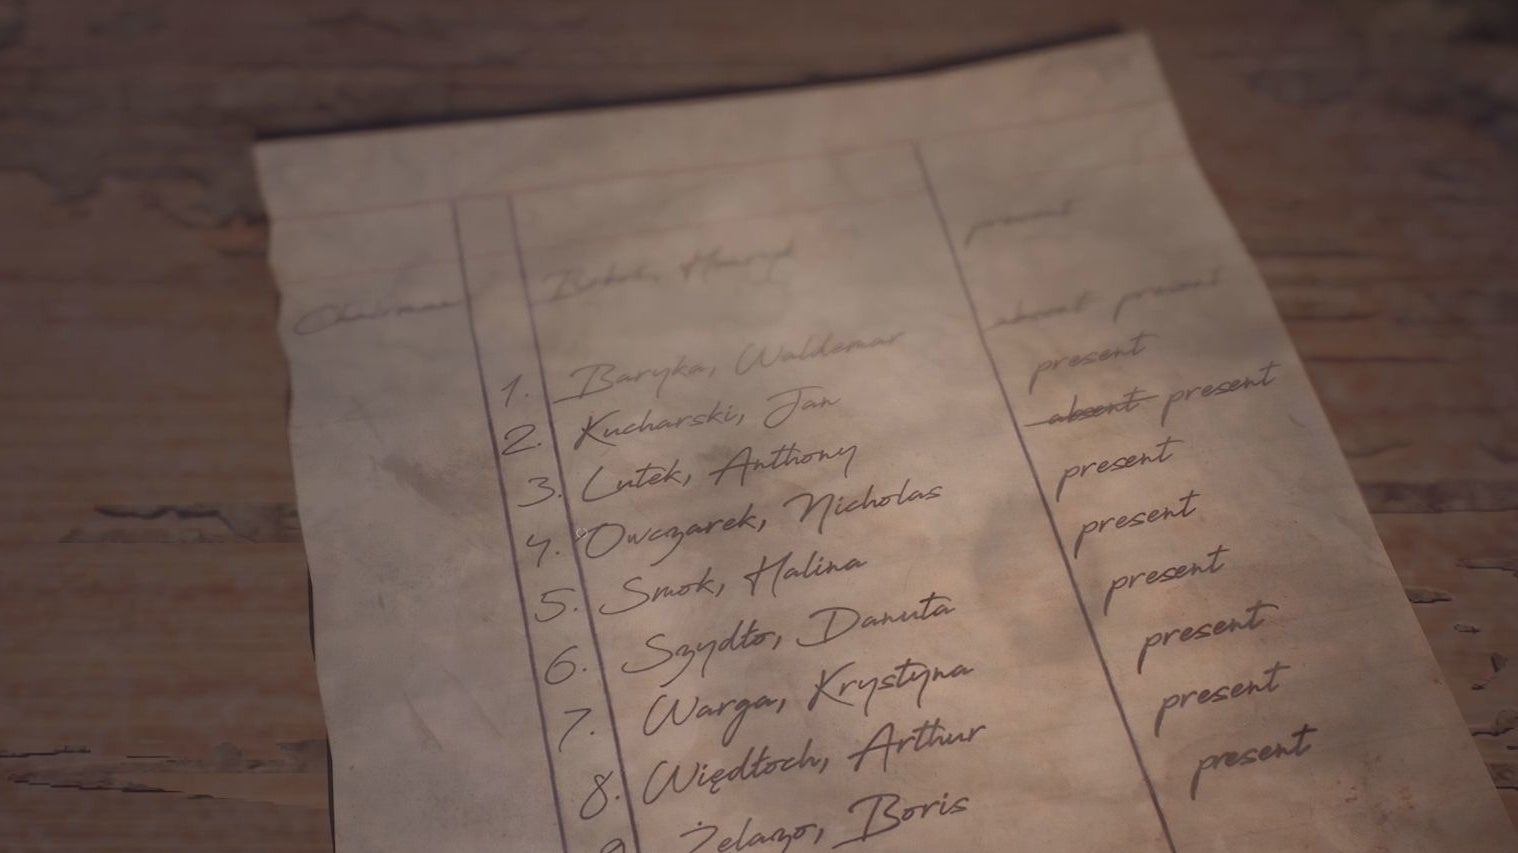 Chairman Henryk present
1. Baryka, Waldemar absent present
2. Kucharski, Jan present
3. Lutek, Anthony absent present
4. Owczarek, Nicholas present
5. Smok, Halina present
6. Szydło, Danuta present
7. Warga, Krystyna present
8. Więdłoch, Arthur present
9 Żelazo, Boris present